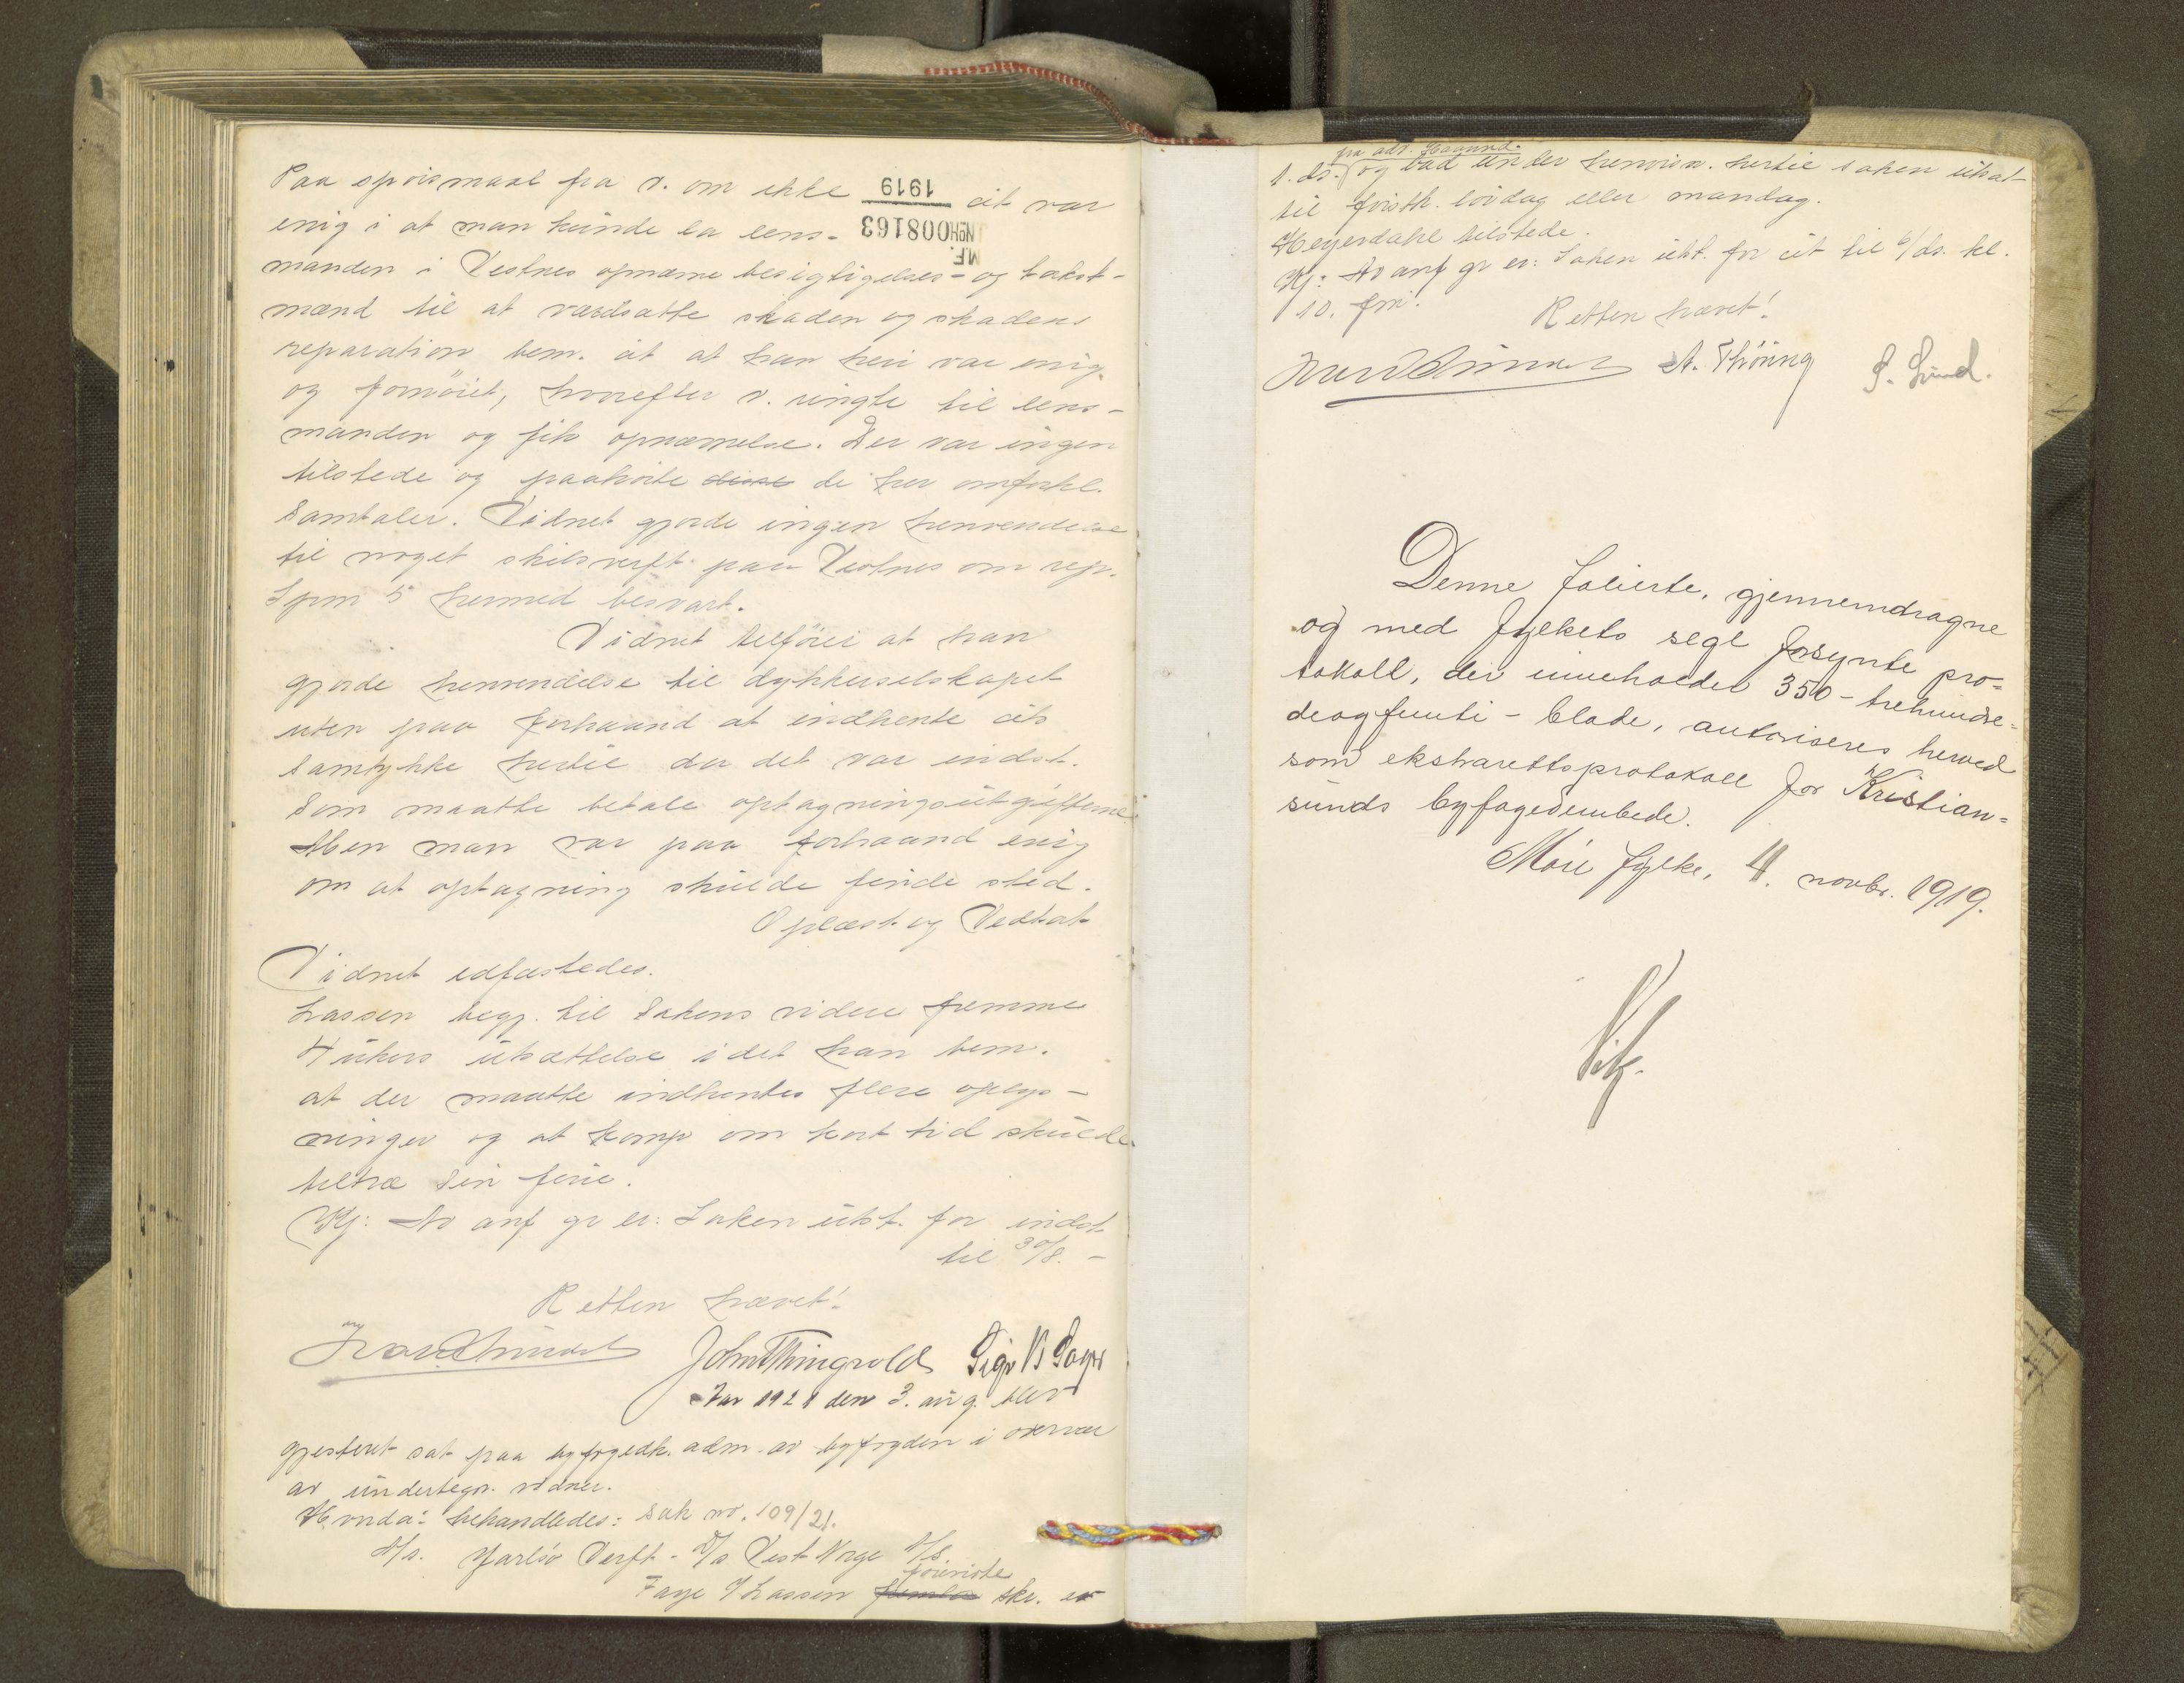 Paa spørsmaal fra v. om ikke cit var
1919
№H008163
MF
enig i at man kunde la lens-
manden i Vestnes opnævne besigtigelses- og takst-
mænd til at værdsætte skaden og skadens
reparation bem. cit at han heri var enig
og fornøiet, hvorefter v. ringte til lens-
manden og fik opnævnelse. Der var ingen
tilstede og paahørte disse de her omforkl.
samtaler. Vidnet gjorde ingen henvendelse
til noget skibsverft paa Vestnes om rep.
Spm 5 hermed besvart.
Vidnet tilføier at han
gjorde henvendelse til dykkerselskapet
uten paa forhaand at indhente cits
samtykke hertil da det var indst.
som maatte betale optagningsutgifterne.
Men man var paa forhaand enig
om at optagning skulde finde sted.
Oplæst og Vedtat
Vidnet edfæstedes.
Lassen begj. til sakens videre fremme
4 ukers utsættelse idet han bem.
at der maatte indhentes flere oplys-
ninger og at komp om kort tid skulde
tiltræ sin ferie.
Kj: Av anf gr er: Saken utst. for indst
til 30/8. -
Retten hævet!
John Thingvold
Aar 1921 den 3. aug. blev
gjesteret sat paa byfogedk. adm. av byfogden i overvær
av undertegn. vidner.
Hvorda: behandledes: sak nr. 109/21.
A/s. Jarlsø Verft - D/s Vest Norge A/S.
foreviste
Fage f Lassen fremla skr. er
fra adv. Haarud.
1. ds. og bad under henvisn. hertil saken utsat
til førstk. lørdag eller mandag.
Heyerdahl tilstede.
Kj: Av anf gr er: Saken utst. for cit til 6/ds. kl.
10. fm.
Retten hævet!
A. Thöring S. Lund.
Denne folierte, gjennemdragne
og med fylkets segl forsynte pro=
tokoll, der inneholder 350 - trehundre=
deogfemti - blade, autoriseres herved
som ekstrarettsprotokoll for Kristian=
sunds byfogedembede.
Møre fylke, 4. novbr. 1919.